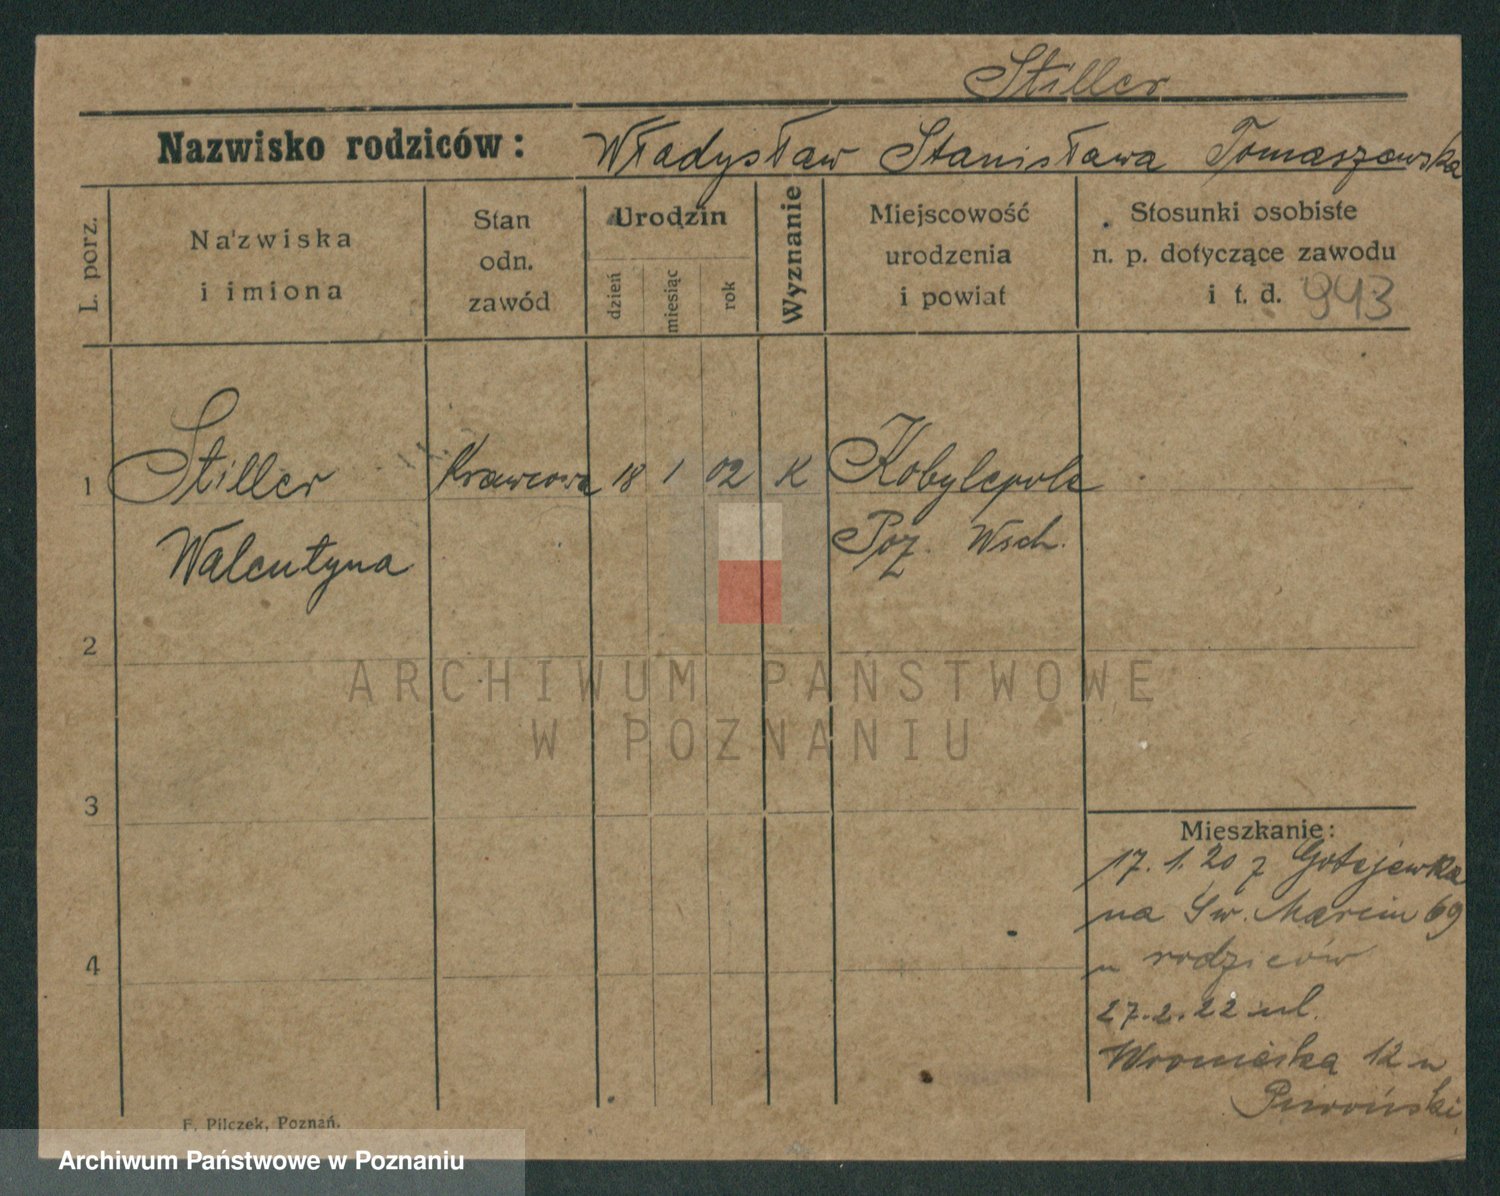 Stiller
Nazwisko rodziców: Władysław Stanisława Tomaszewska
L. porz.
Nazwiska
i imiona
Stan
odn.
zawód
Urodzin
dzień
miesiąc
rok
Wyznanie
Miejscowość
urodzenia
i powiat
Stosunki osobiste
n. p. dotyczące zawodu
i t. d. 943
1 Stiller Krawcowa 18 1 02 K Kobylepole
Walentyna Poz. Wsch.
2
3
4
Mieszkanie:
17. 1. 20 z Gotejewka
na Św. Marcin 69
u rodziców
27.2.22 ul.
Wroniecka 12 u
F. Pilczek, Poznań.
ARCHIWUM PAŃSTWOWE
W POZNANIU
Archiwum Państwowe w Poznaniu